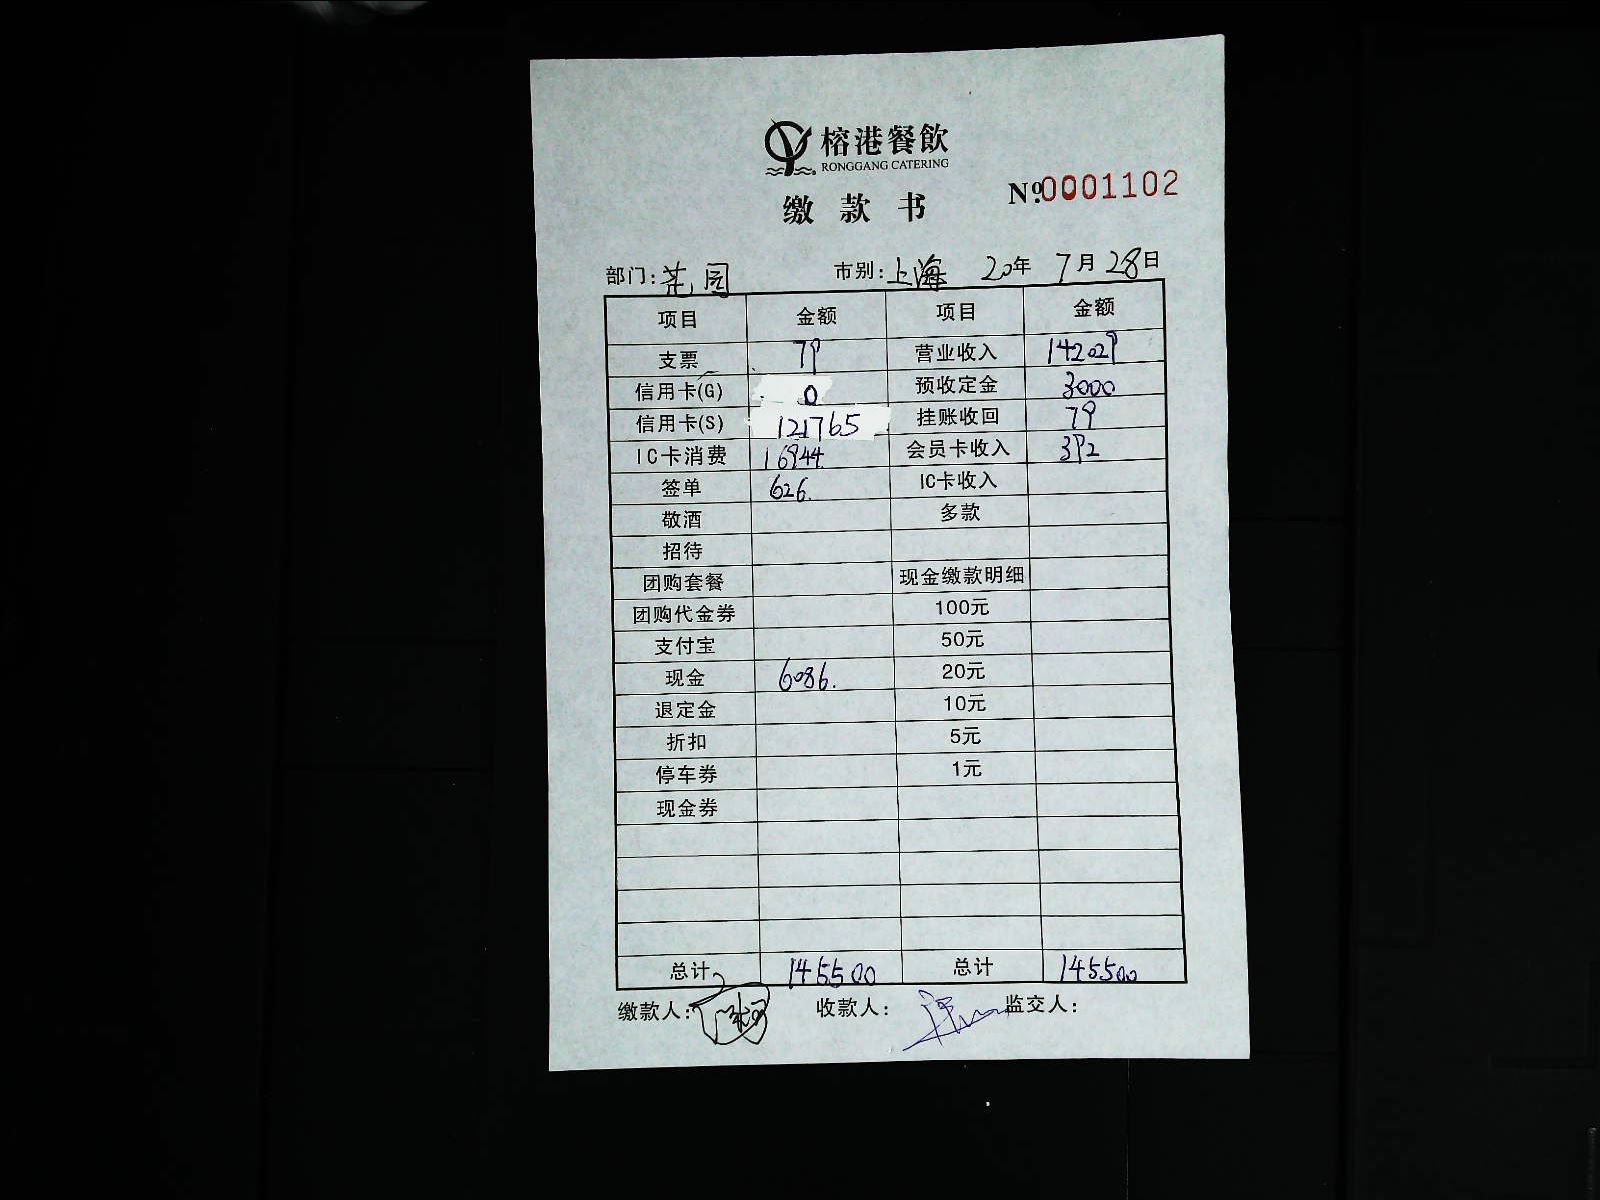 榕港餐飲
RONGGANG CATERING
缴款书 Nº.0001102
部门: 花园 市别: 上海 20年 7月 28日
项目 金额 项目 金额
支票 79 营业收入 142029
信用卡(G) 0 预收定金 3000
信用卡(S) 121765 挂账收回 79
IC卡消费 16944. 会员卡收入 392
签单 626. IC卡收入
敬酒 多款
招待
团购套餐 现金缴款明细
团购代金券 100元
支付宝 50元
现金 6086. 20元
退定金 10元
折扣 5元
停车券 1元
现金券
总计 145500 总计 145500
缴款人: 收款人: 监交人: